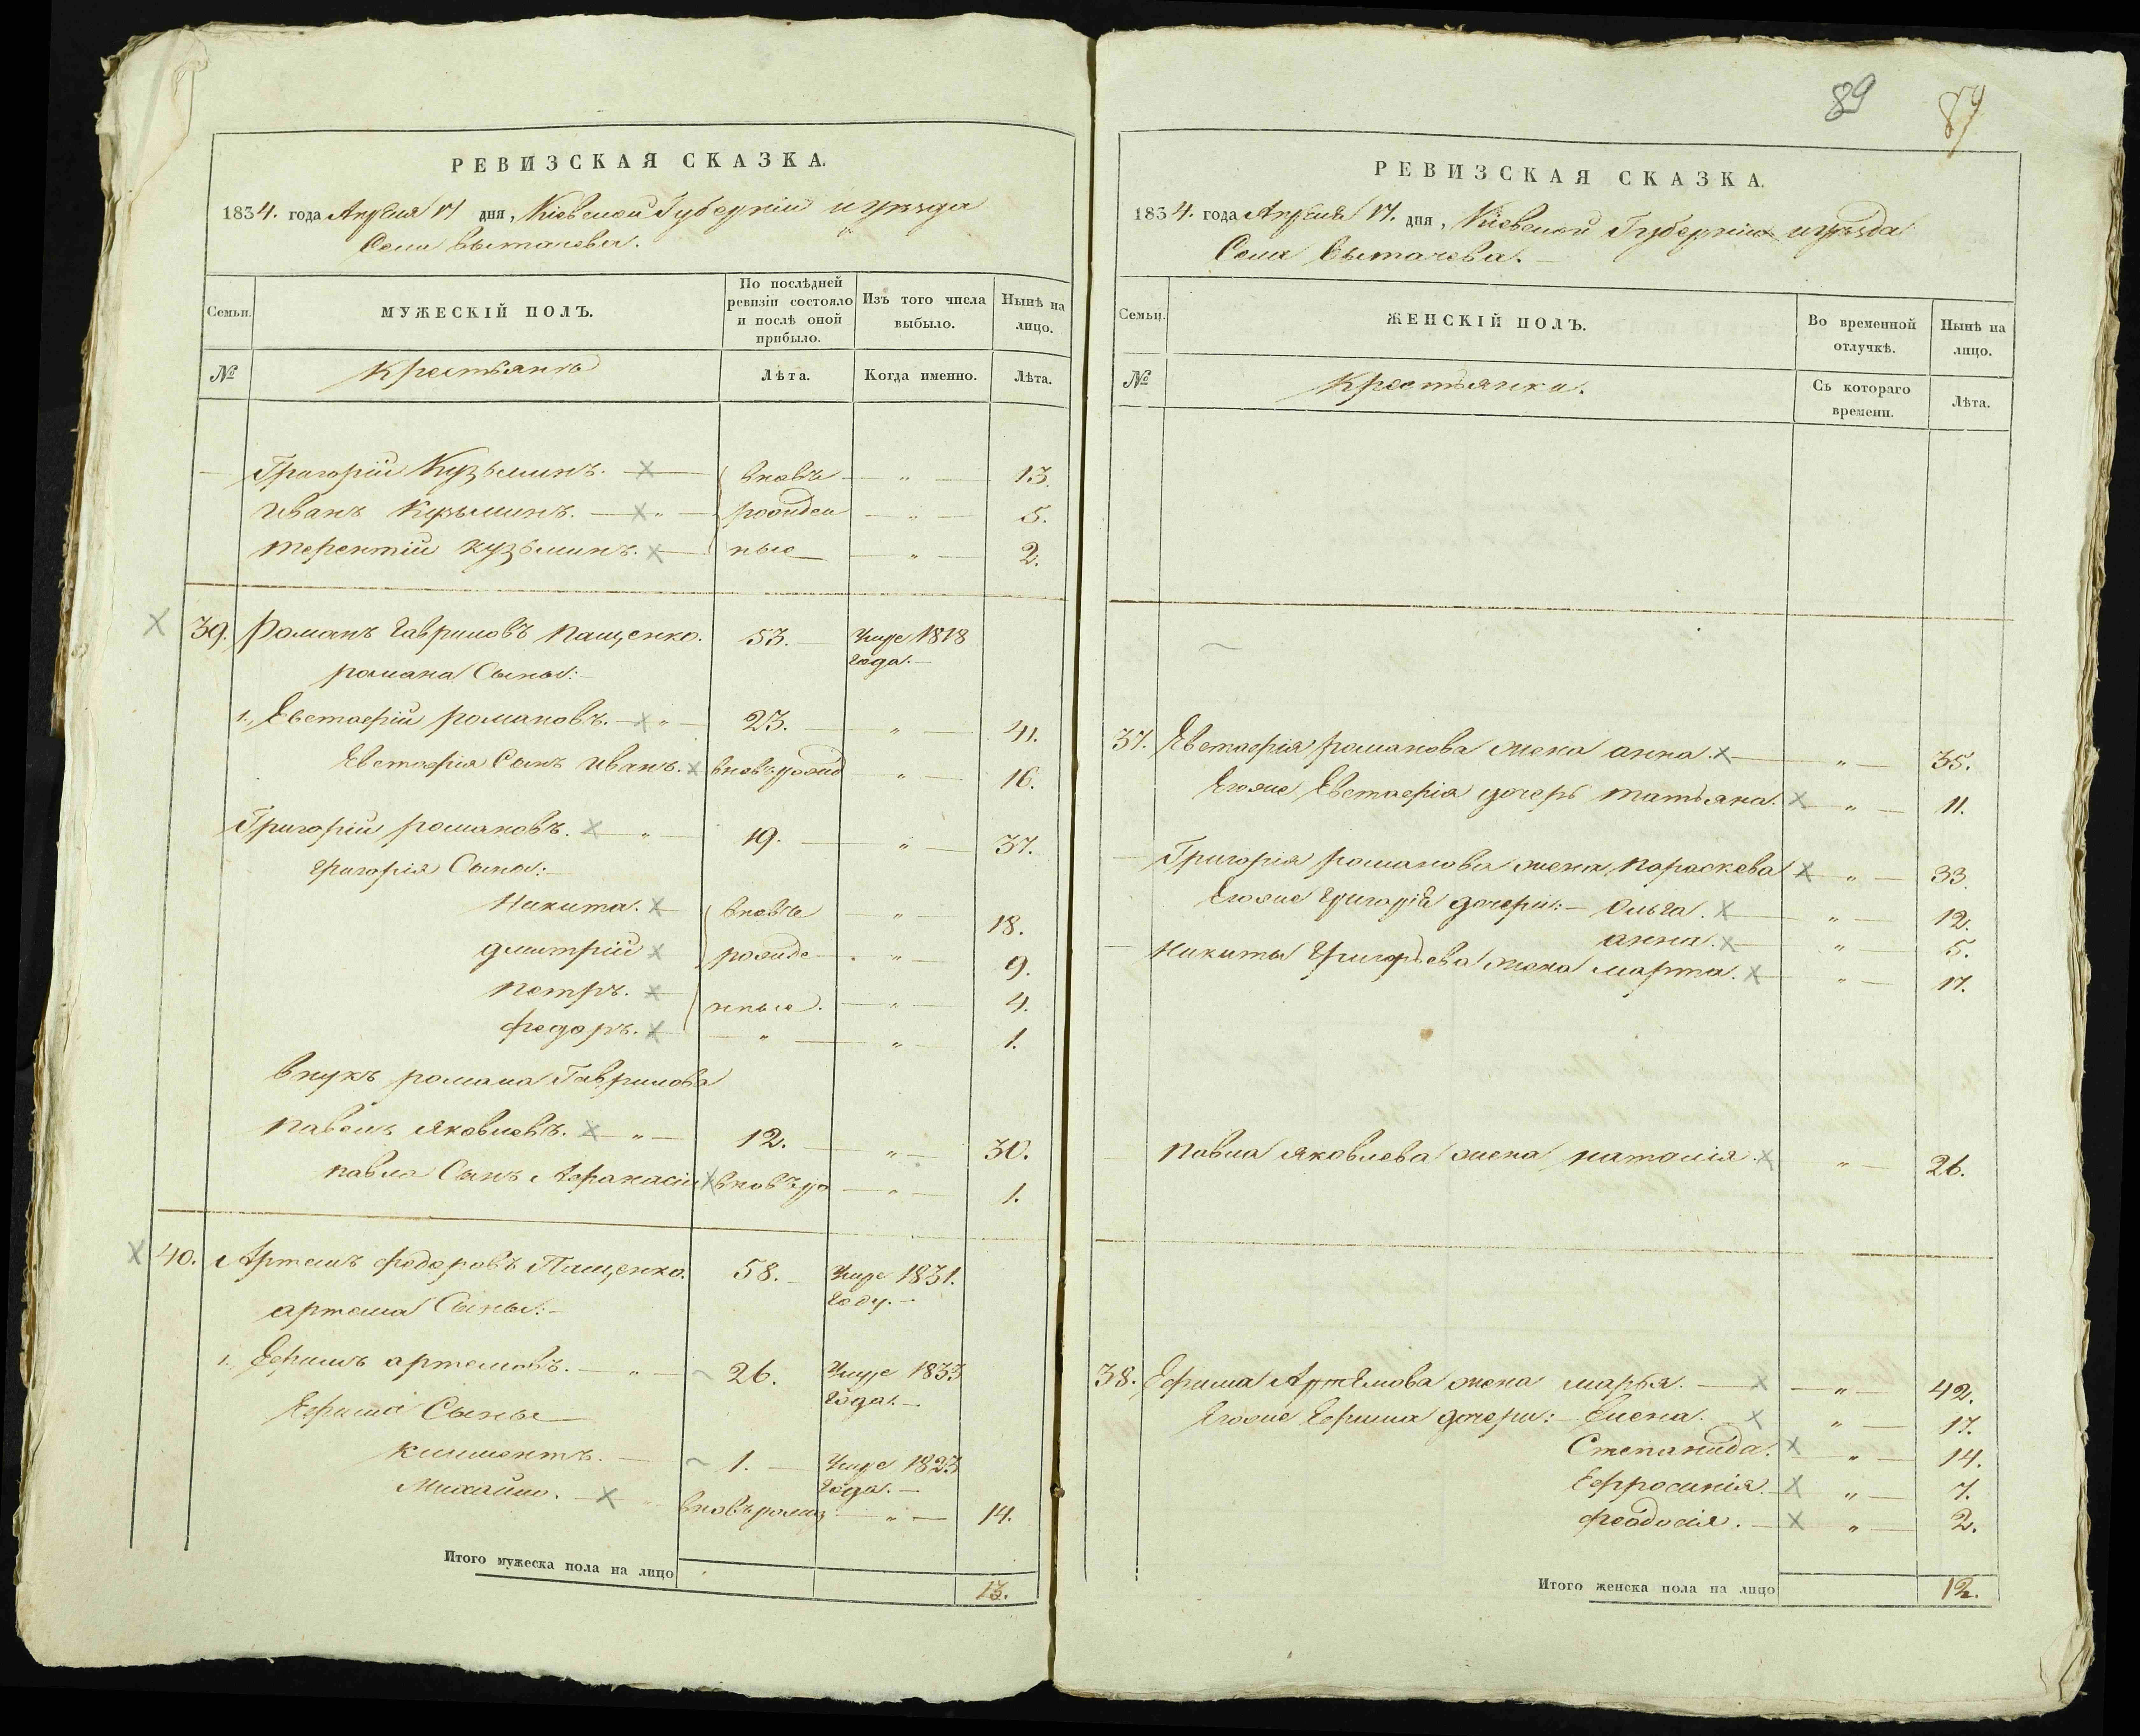 89 87
РЕВИЗСКАЯ СКАЗКА.
1834. года Апреля 17 дня, Кіевской Губерніи и уѣзда
Села Вытачева.
Семьи.
МУЖЕСКІЙ ПОЛЪ.
По послѣдней ревизіи состояло и послѣ оной прибыло.
Изъ того числа выбыло.
Нынѣ на лицо.
№
Крестьянъ
Лѣта.
Когда именно.
Лѣта.
Григорій Кузьминъ. — вновь — „ — 13.
Иванъ Кузьминъ. — „ — рожден — „ — 5.
Терентій Кузьминъ. — ные — „ — 2.
39. Романъ Гавриловъ Пащенко. 53. — Умре 1818
года. —
романа Сыны:
1., Евстафій романовъ. — „ — 23. — „ — 41.
Евстафія Сынъ Иванъ. вновь рожд — „ — 16.
Григорій романовъ. — „ — 19. — „ — 37.
григорія Сыны: —
Никита. вновь — „ 18.
дмитрій рожде — „ — 9.
петръ. нные. — „ — 4.
федоръ. — „ — „ — 1.
внукъ романа Гаврилова
павелъ яковлевъ. — „ — 12. — „ — 30.
павла Сынъ Афанасій вновь ро — „ — 1.
40. Артемъ федоровъ Пащенко. 58. — Умре 1831.
году. —
артема Сыны: —
1. Ефимъ артемовъ. — „ — 26. Умре 1833
года. —
Ефима Сынье
климентъ. — 1. — Умре 1823
года. —
Михайло. — вновь рожд — „ — 14.
Итого мужеска пола на лицо 13.
РЕВИЗСКАЯ СКАЗКА.
1834. года Апреля 17. дня, Кіевской Губерніи и уѣзда
Села Вытачева. —
Семьи.
ЖЕНСКІЙ ПОЛЪ.
Во временной отлучкѣ.
Нынѣ на лицо.
№
Крестьянки.
Съ котораго времени.
Лѣта.
37. Евстафія романова жена анна. — „ — 35.
Егоже Евстафія дочерь татьяна. — „ — 11.
Григорія романова жена параскева — „ — 33.
Егоже григорія дочерии: — Ольга. — „ — 12.
анна. — „ — 5.
Никиты Григорьева жена марта. — „ — 17.
Павла яковлева жена наталія. — „ — 26.
38. Ефима Артемова жена марья. — „ — 42.
Егоже Ефима дочери: — Елена. — „ — 17.
Степанида. — „ — 14.
Ефросинія. — „ — 7.
феодосія. — „ — 2.
Итого женска пола на лицо 12.